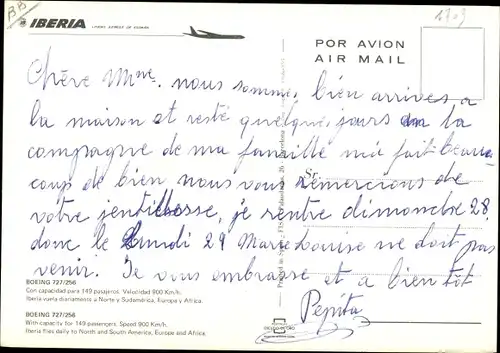 BB
IBERIA
LINEAS AEREAS DE ESPAÑA
1703
POR AVION
AIR MAIL
Chère Mme. nous sommes bien arrives a
la maison et resté quelque jours en la
compagne de ma famille m'a fait beau
coup de bien nous vous remercions de
votre jentillesse, je rentre dimanche 28,
donc le Lundi 29 Marie Louise ne doit pas
venir. Je vous embrasse et a bien tôt
Pepita
Sr.
BOEING 727/256
Con capacidad para 149 pasajeros. Velocidad 900 Km/h.
Iberia vuela diariamente a Norte y Sudamérica, Europa y Africa.
BOEING 727/256
With capacity for 149 passengers. Speed 900 Km/h.
Iberia flies daily to North and South America, Europe and Africa.